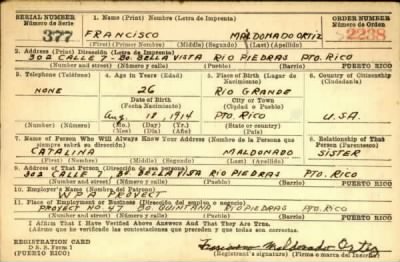 SERIAL NUMBER 1. Name (Print) Nombre (Letra de Imprenta) ORDER NUMBER
Número de Serie Número de Orden
377 FRANCISCO MALDONADO ORTIZ 2238
(First) (Primer Nombre) (Middle) (Segundo) (Last) (Apellido)
2. Address (Print) Dirección (Letra de Imprenta)
302 CALLE 7- BO. BELLA VISTA RIO PIEDRAS PTO. RICO
(Number and street) (Número y calle) (Town) (Pueblo) PUERTO RICO
3. Telephone (Teléfono) 4. Age in Years (Edad) 5. Place of Birth (Lugar de Nacimiento) 6. Country of Citizenship (Ciudadanía)
NONE 26 RIO GRANDE
Date of Birth City or Town
(Fecha Nacimiento) (Ciudad o Pueblo)
Aug. 18, 1914 PTO. RICO U.S.A.
(Mo.) (Day) (Yr.) (State or country)
(Mes) (Día) (Año) (Estado o país)
7. Name of Person Who Will Always Know Your Address (Nombre de la Persona que siempre sabrá su dirección) 8. Relationship of That Person (Parentesco)
CATALINA MALDONADO SISTER
(First) (Primer Nombre) (Middle) (Segundo) (Last) (Apellido)
9. Address of That Person (Dirección de esa persona)
302 CALLE 7 BO BELLA VISTA RIO PIEDRAS PTO. RICO
(Number and street) (Número y calle) (Town) (Pueblo) PUERTO RICO
10. Employer's Name (Nombre del Patrono)
PROYECT
11. Place of Employment or Business (Dirección del empleo o negocio)
PROYECT NO. 47 BO. QUINTANA RIO PIEDRAS PTO. RICO
(Number and street) (Número y calle) (Town) (Pueblo) PUERTO RICO
I Affirm That I Have Verified Above Answers and That They Are True.
REGISTRATION CARD
D. S. S. Form 1
(PUERTO RICO)
Francisco Maldonado Ortiz
(Registrant's signature) (Firma o marca del Inscrito)